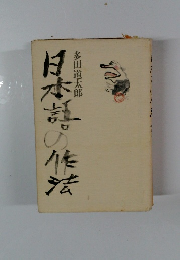 多田道太郎
日本語の作法